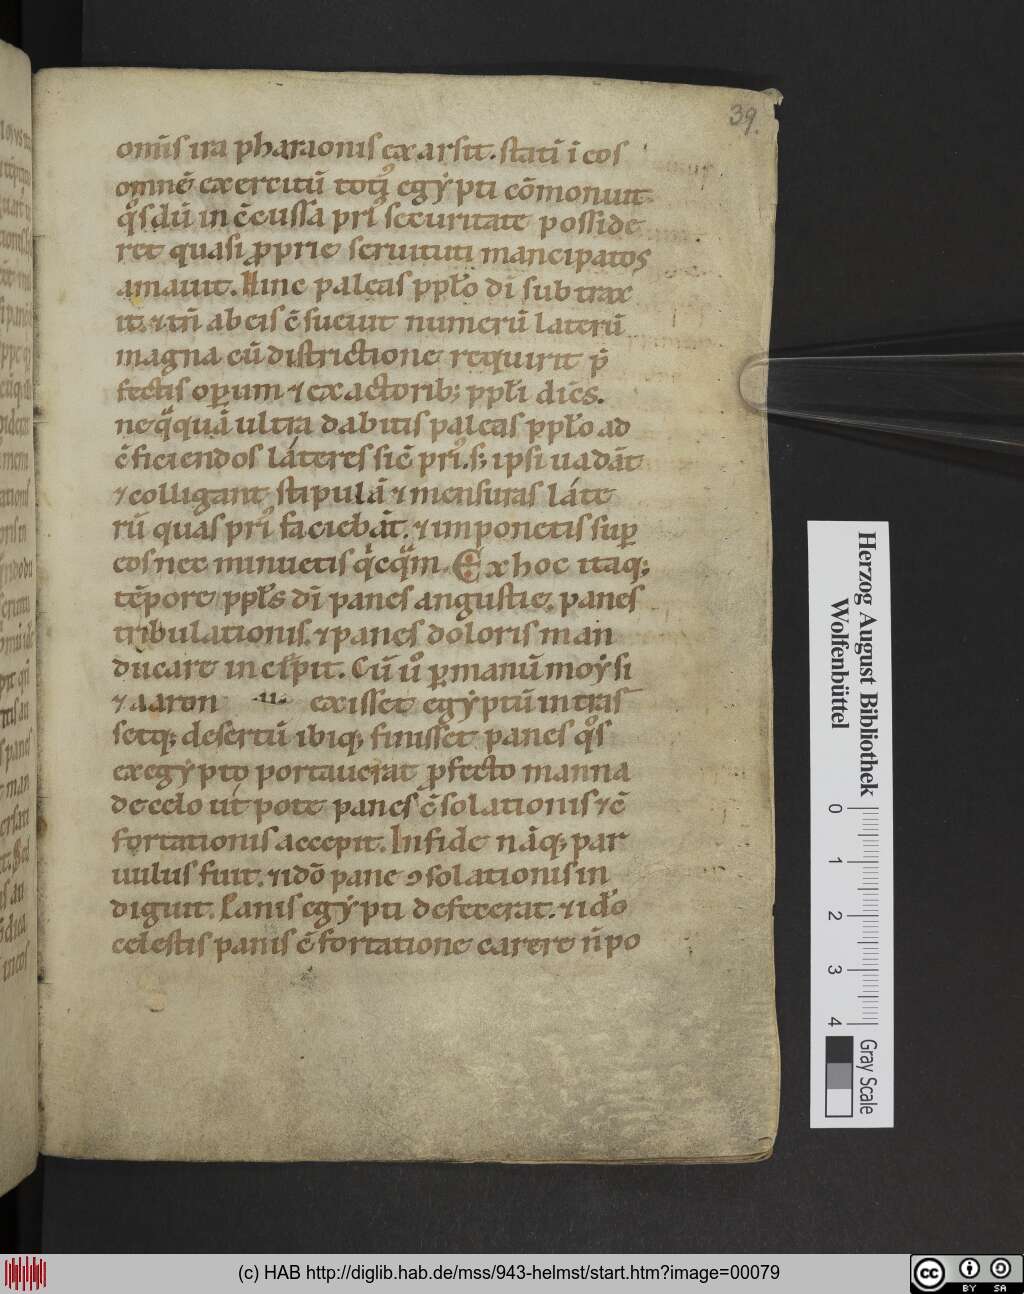 39.
om̄is ira pharaonis exarsit. statī ī eos
omnē exercitū totiꝰ egẏpti cōmonuit
qͦs dū in c̄cussa priꝰ securitate posside
ret quasi ꝓprie seruituti mancipatos
amauit. Hinc paleas ppło di subtrax
it. ⁊ tn̄ ab eis c̄sueuit numerū laterū
magna cū districtione requirit p̄
fectis oꝑum ⁊ exactorib; ppłi dicēs.
neq̈quā ultra dabitis paleas ppło ad
c̄ficiendos láteres sic̄ priꝰ. s; ipsi uadāt
⁊ colligant stipulā ⁊ mensuras láte
rū quas priꝰ faciebāt. ⁊ imponetis suꝑ
eos nec minuetis qicq̈m. Ex hoc itaq;
tēpore ppłs dī panes angustię. panes
tribulationis. ⁊ panes doloris man
ducare incepit. Cū uͦ ꝑ manū moẏsi
⁊ aaron exisset egẏptū intras
setq; desertū ibiq; finisset panes qͦs
ex egẏpto portauerat ꝓfecto manna
de celo ut pote panes c̄solationis ⁊ c̄
fortationis accepit. In fide nāq; par
uulus fuit. ⁊ idō pane ꝯsolationis in
diguit. Panis egẏpti defecerat. ⁊ idō
celestis panis c̄fortatione carere n̄ po
Herzog August Bibliothek
Wolfenbüttel
0 1 2 3 4
Gray Scale
(c) HAB http://diglib.hab.de/mss/943-helmst/start.htm?image=00079
cc BY SA